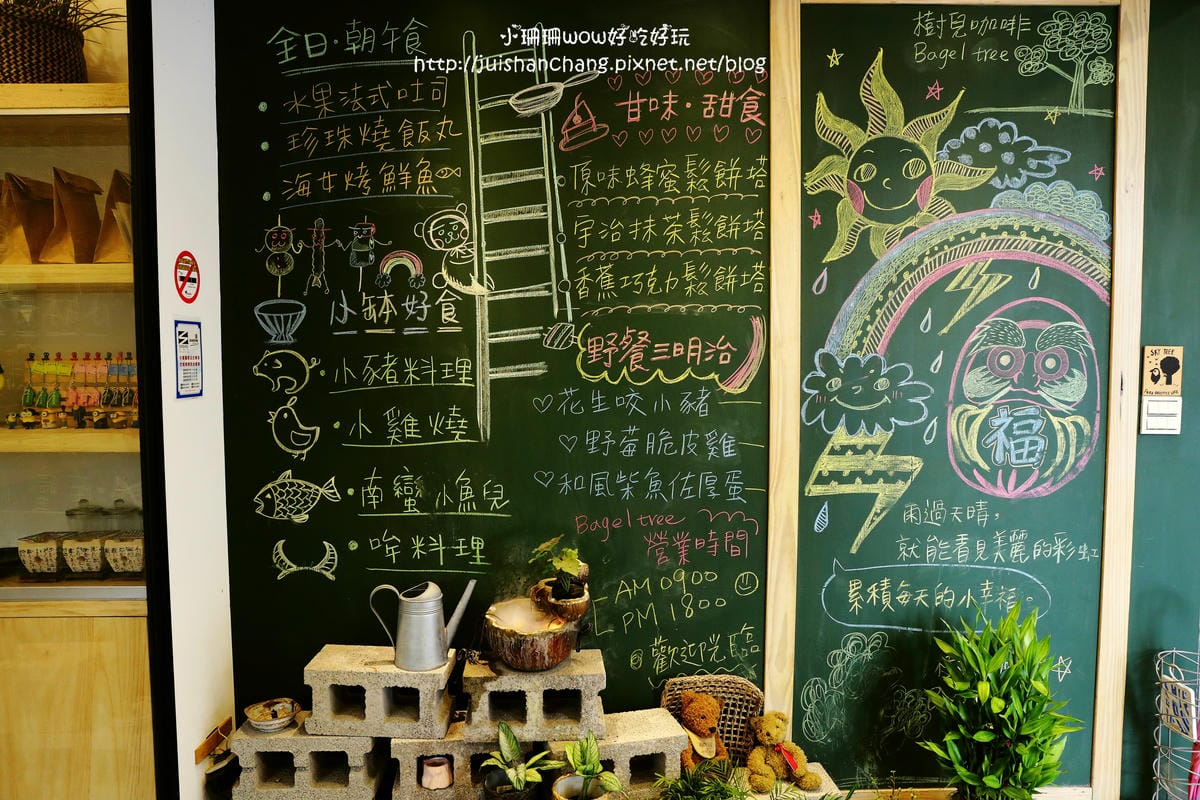 小珊珊wow好吃好玩
http://juishanchang.pixnet.net/blog
全日·朝午食
水果法式吐司
珍珠燒飯丸
海女烤鮮魚
小缽好食
小豬料理
小雞燒
南蠻小魚兒
哞料理
甘味·甜食
原味蜂蜜鬆餅塔
宇治抹茶鬆餅塔
香蕉巧克力鬆餅塔
野餐三明治
花生咬小豬
野莓脆皮雞
和風柴魚佐厚蛋
Bagel tree
營業時間
AM 0900
PM 1800
歡迎光臨
樹兒咖啡
Bagel tree
福
雨過天晴,
就能看見美麗的彩虹
累積每天的小幸福。
SKY TREE